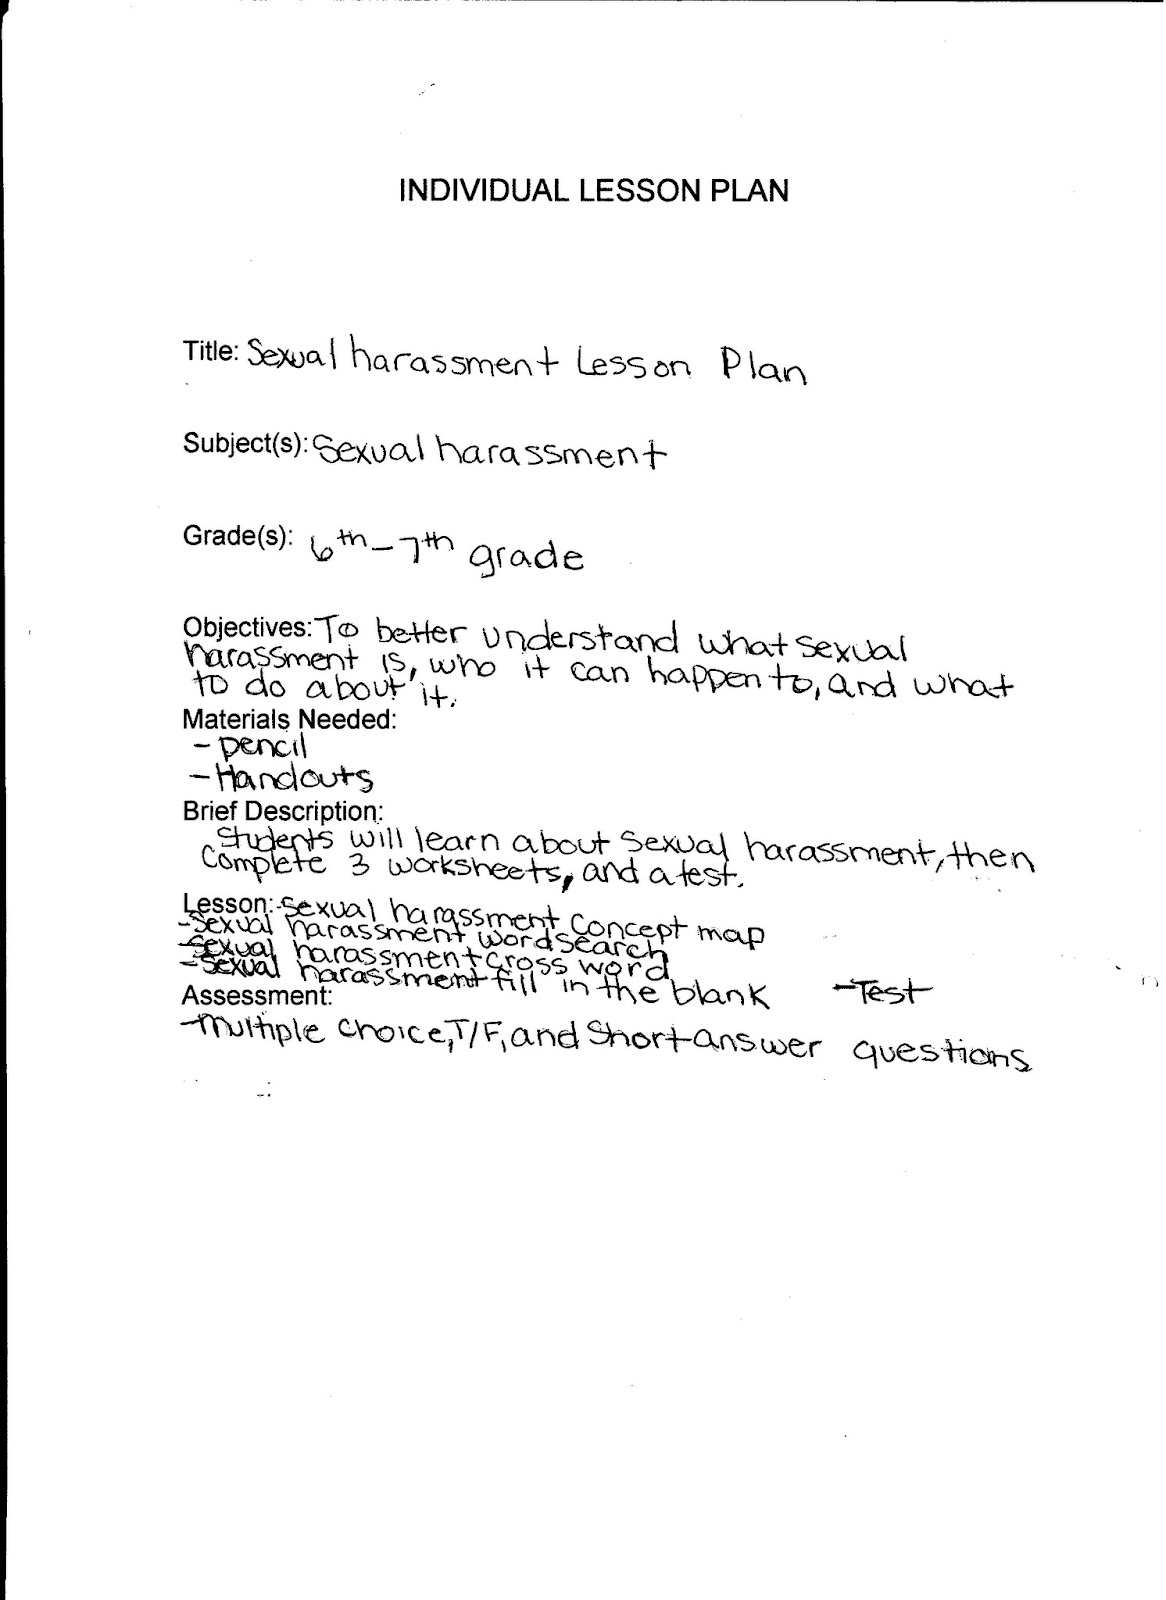 INDIVIDUAL LESSON PLAN
Title: Sexual harassment Lesson Plan
Subject(s): Sexual harassment
Grade(s): 6th-7th grade
Objectives: To better understand what sexual
harassment is, who it can happen to, and what
to do about it.
Materials Needed:
- pencil
- Handouts
Brief Description:
Students will learn about sexual harassment, then
Complete 3 worksheets, and a test.
Lesson: -Sexual harassment concept map
-Sexual harassment wordsearch
-Sexual harassment cross word
-Sexual harassment fill in the blank -Test
Assessment:
-Multiple choice, T/F, and Short-answer questions